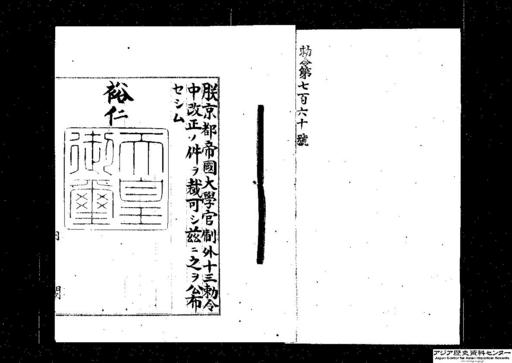 勅令第七百六十號
朕京都帝國大學官制外十三勅令
中改正ノ件ヲ裁可シ茲ニ之ヲ公布
セシム
裕仁
天皇
御璽
アジア歴史資料センター
Japan Center for Asian Historical Records